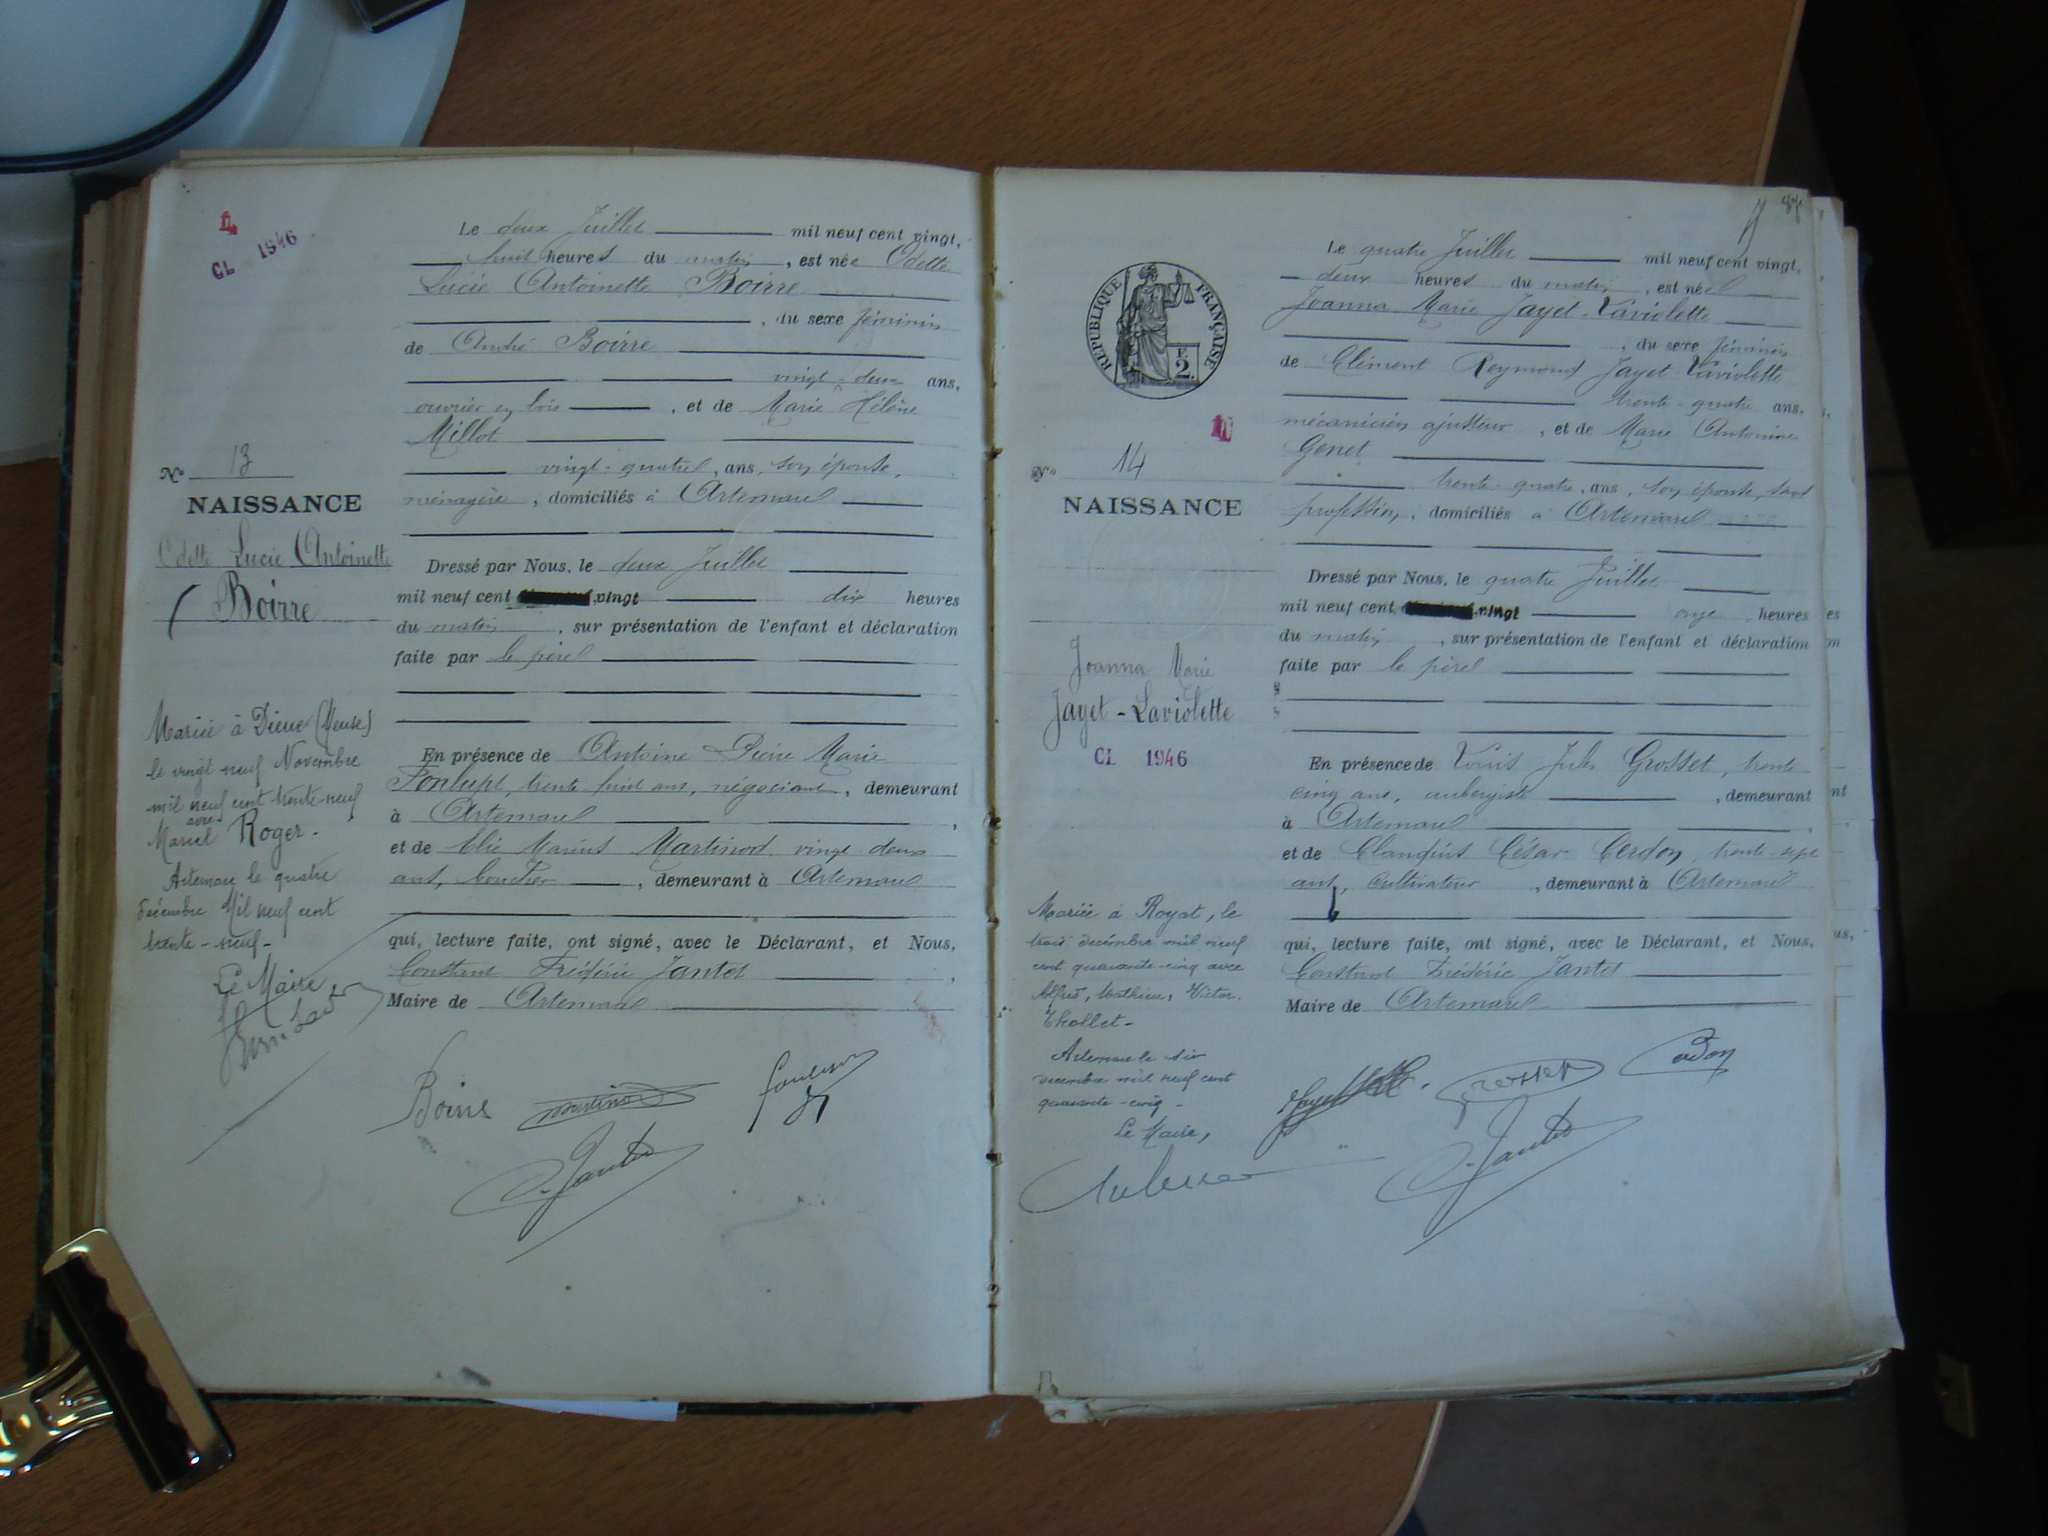 CL 1946
Le deux Juillet mil neuf cent vingt,
huit heures du matin, est née Odette
Lucie Antoinette Boirre
, du sexe féminin
de André Boirre
vingt-deux ans,
ouvrier en bois, et de Marie Hélène
Millot
vingt-quatre, ans, son épouse,
ménagère, domiciliés à Artemare
Nº 13
NAISSANCE
Odette Lucie Antoinette
Boirre
Dressé par Nous, le deux Juillet
mil neuf cent vingt dix heures
du matin, sur présentation de l'enfant et déclaration
faite par le père
En présence de Antoine Marie
trente huit ans, négociant, demeurant
à Artemare,
et de Elie Marius Martinod vingt deux
ans, boucher, demeurant à Artemare
qui, lecture faite, ont signé, avec le Déclarant, et Nous,
Constant Frédéric Jantet,
Maire de Artemare
Mariée à Dieue (Meuse)
le vingt neuf Novembre
mil neuf cent trente-neuf
avec
Marcel Roger.
Artemare le quatre
Décembre Mil neuf cent
trente-neuf-
Le Maire,
Boirre
Jantet
87
REPUBLIQUE FRANÇAISE
2
Le quatre Juillet mil neuf cent vingt,
deux heures du matin, est née
Joanna Marie Jayet-Laviolette
, du sexe féminin
de Clément Reymond Jayet-Laviolette
trente-quatre ans,
mécanicien ajusteur, et de Marie Antonine
Genet
trente-quatre, ans, son épouse, sans
profession, domiciliés à Artemare
Nº 14
NAISSANCE
Joanna Marie
Jayet-Laviolette
CL 1946
Dressé par Nous, le quatre Juillet
mil neuf cent vingt onze heures
du matin, sur présentation de l'enfant et déclaration
faite par le père
En présence de Louis Jules Grosset, trente
cinq ans, aubergiste, demeurant
à Artemare,
et de Claudius César Cerdon, trente-sept
ans, cultivateur, demeurant à Artemare
qui, lecture faite, ont signé, avec le Déclarant, et Nous,
Constant Frédéric Jantet
Maire de Artemare
Mariée à Royat, le
trois décembre mil neuf
cent quarante-cinq avec
Alfred, Mathieu, Victor
Thollet-
Artemare le six
décembre mil neuf cent
quarante-cinq-
Le Maire,
Grosset
Jantet